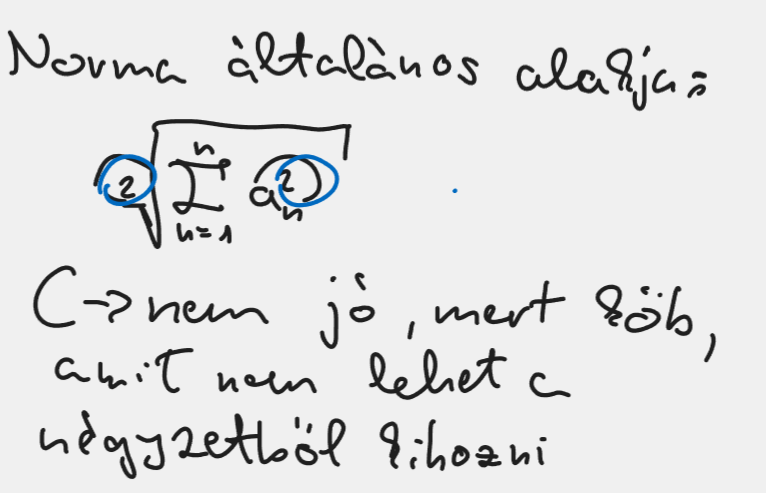 Norma általános alakja:
²√ n Σ n=1 aₙ²
C→nem jó, mert köb,
amit nem lehet a
négyzetből kihozni